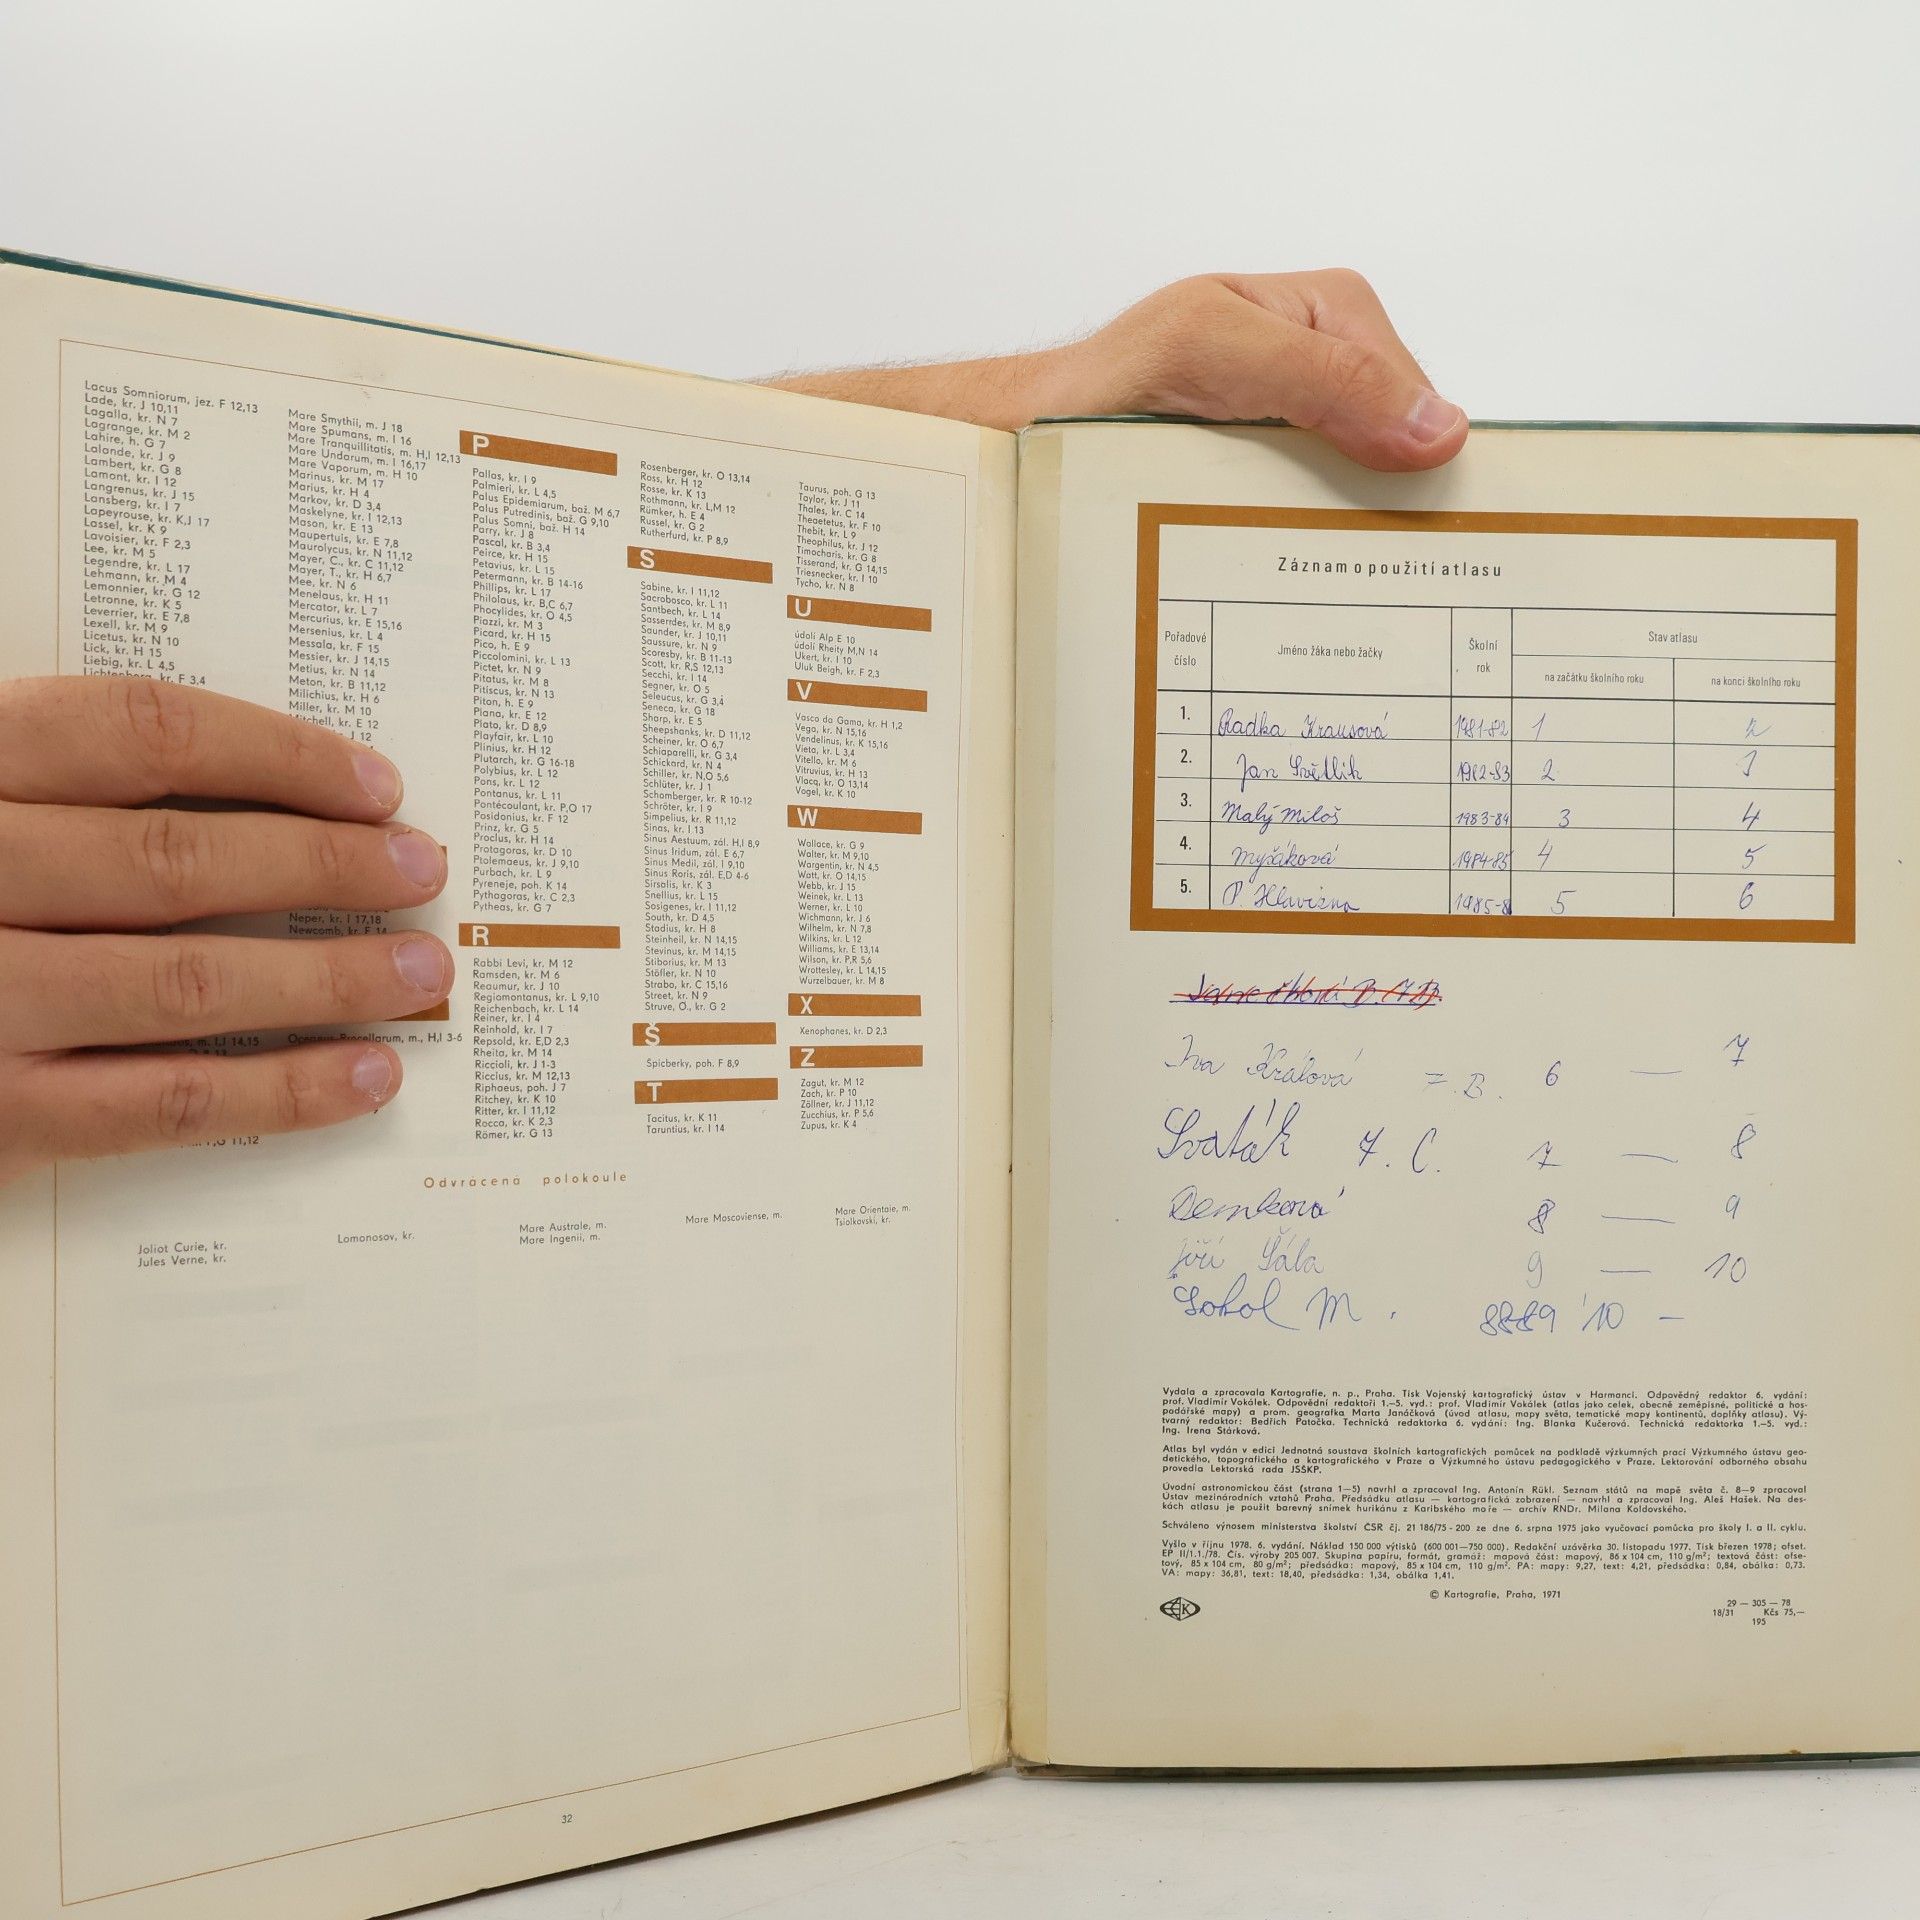 Lacus Somniorum, jez. F 12,13
Lade, kr. J 10,11
Lagalla, kr. N 7
Lagrange, kr. M 2
Lahire, h. G 7
Lalande, kr. J 9
Lambert, kr. G 8
Lamont, kr. I 12
Langrenus, kr. J 15
Lansberg, kr. I 7
Lapeyrouse, kr. K,J 17
Lassel, kr. K 9
Lavoisier, kr. F 2,3
Lee, kr. M 5
Legendre, kr. L 17
Lehmann, kr. M 4
Lemonnier, kr. G 12
Letronne, kr. K 5
Leverrier, kr. E 7,8
Lexell, kr. M 9
Licetus, kr. N 10
Lick, kr. H 15
Liebig, kr. L 4,5
Lichtenberg, kr. F 3,4
14,15
11,12
Mare Smythii, m. J 18
Mare Spumans, m. I 16
Mare Tranquillitatis, m. H,I 12,13
Mare Undarum, m. I 16,17
Mare Vaporum, m. H 10
Marinus, kr. M 17
Marius, kr. H 4
Markov, kr. D 3,4
Maskelyne, kr. I 12,13
Mason, kr. E 13
Maupertuis, kr. E 7,8
Maurolycus, kr. N 11,12
Mayer, C., kr. C 11,12
Mayer, T., kr. H 6,7
Mee, kr. N 6
Menelaus, kr. H 11
Mercator, kr. L 7
Mercurius, kr. E 15,16
Mersenius, kr. L 4
Messala, kr. F 15
Messier, kr. J 14,15
Metius, kr. N 14
Meton, kr. B 11,12
Milichius, kr. H 6
Miller, kr. M 10
Mitchell, kr. E 12
J 12
Neper, kr. I 17,18
Newcomb, kr. F 14
Oceanus Procellarum, m., H,I 3-6
P
Pallas, kr. I 9
Palmieri, kr. L 4,5
Palus Epidemiarum, baž. M 6,7
Palus Putredinis, baž. G 9,10
Palus Somni, baž. H 14
Parry, kr. J 8
Pascal, kr. B 3,4
Peirce, kr. H 15
Petavius, kr. L 15
Petermann, kr. B 14-16
Phillips, kr. L 17
Philolaus, kr. B,C 6,7
Phocylides, kr. O 4,5
Piazzi, kr. M 3
Picard, kr. H 15
Pico, h. E 9
Piccolomini, kr. L 13
Pictet, kr. N 9
Pitatus, kr. M 8
Pitiscus, kr. N 13
Piton, h. E 9
Plana, kr. E 12
Plato, kr. D 8,9
Playfair, kr. L 10
Plinius, kr. H 12
Plutarch, kr. G 16-18
Polybius, kr. L 12
Pons, kr. L 12
Pontanus, kr. L 11
Pontécoulant, kr. P,O 17
Posidonius, kr. F 12
Prinz, kr. G 5
Proclus, kr. H 14
Protagoras, kr. D 10
Ptolemaeus, kr. J 9,10
Purbach, kr. L 9
Pyreneje, poh. K 14
Pythagoras, kr. C 2,3
Pytheas, kr. G 7
R
Rabbi Levi, kr. M 12
Ramsden, kr. M 6
Reaumur, kr. J 10
Regiomontanus, kr. L 9,10
Reichenbach, kr. L 14
Reiner, kr. I 4
Reinhold, kr. I 7
Repsold, kr. E,D 2,3
Rheita, kr. M 14
Riccioli, kr. J 1-3
Riccius, kr. M 12,13
Riphaeus, poh. J 7
Ritchey, kr. K 10
Ritter, kr. I 11,12
Rocca, kr. K 2,3
Römer, kr. G 13
Rosenberger, kr. O 13,14
Ross, kr. H 12
Rosse, kr. K 13
Rothmann, kr. L,M 12
Rümker, h. E 4
Russel, kr. G 2
Rutherfurd, kr. P 8,9
S
Sabine, kr. I 11,12
Sacrobosco, kr. L 11
Santbech, kr. L 14
Sasserrdes, kr. M 8,9
Saunder, kr. J 10,11
Saussure, kr. N 9
Scoresby, kr. B 11-13
Scott, kr. R,S 12,13
Secchi, kr. I 14
Segner, kr. O 5
Seleucus, kr. G 3,4
Seneca, kr. G 18
Sharp, kr. E 5
Sheepshanks, kr. D 11,12
Scheiner, kr. O 6,7
Schiaparelli, kr. G 3,4
Schickard, kr. N 4
Schiller, kr. N,O 5,6
Schlüter, kr. J 1
Schomberger, kr. R 10-12
Schröter, kr. I 9
Simpelius, kr. R 11,12
Sinas, kr. I 13
Sinus Aestuum, zál. H,I 8,9
Sinus Iridum, zál. E 6,7
Sinus Medii, zál. I 9,10
Sinus Roris, zál. E,D 4-6
Sirsalis, kr. K 3
Snellius, kr. L 15
Sosigenes, kr. I 11,12
South, kr. D 4,5
Stadius, kr. H 8
Steinheil, kr. N 14,15
Stevinus, kr. M 14,15
Stiborius, kr. M 13
Stöfler, kr. N 10
Strabo, kr. C 15,16
Street, kr. N 9
Struve, O., kr. G 2
Š
Špicberky, poh. F 8,9
T
Tacitus, kr. K 11
Taruntius, kr. I 14
Taurus, poh. G 13
Taylor, kr. J 11
Thales, kr. C 14
Theaetetus, kr. F 10
Thebit, kr. L 9
Theophilus, kr. J 12
Timocharis, kr. G 8
Tisserand, kr. G 14,15
Triesnecker, kr. I 10
Tycho, kr. N 8
U
údolí Alp E 10
údolí Rheity M,N 14
Ukert, kr. I 10
Uluk Beigh, kr. F 2,3
V
Vasco da Gama, kr. H 1,2
Vega, kr. N 15,16
Vendelinus, kr. K 15,16
Vieta, kr. L 3,4
Vitello, kr. M 6
Vitruvius, kr. H 13
Vlacq, kr. O 13,14
Vogel, kr. K 10
W
Wallace, kr. G 9
Walter, kr. M 9,10
Wargentin, kr. N 4,5
Watt, kr. O 14,15
Webb, kr. J 15
Weinek, kr. L 13
Werner, kr. L 10
Wichmann, kr. J 6
Wilhelm, kr. N 7,8
Wilkins, kr. L 12
Williams, kr. E 13,14
Wilson, kr. P,R 5,6
Wrottesley, kr. L 14,15
Wurzelbauer, kr. M 8
X
Xenophanes, kr. D 2,3
Z
Zagut, kr. M 12
Zach, kr. P 10
Zöllner, kr. J 11,12
Zucchius, kr. P 5,6
Zupus, kr. K 4
Odvrácená polokoule
Joliot Curie, kr.
Jules Verne, kr.
Lomonosov, kr.
Mare Australe, m.
Mare Ingenii, m.
Mare Moscoviense, m.
Mare Orientale, m.
Tsiolkovski, kr.
32
Záznam o použití atlasu
Pořadové číslo Jméno žáka nebo žačky Školní rok Stav atlasu
na začátku školního roku na konci školního roku
1. Radka Krausová 1981-82 1 2
2. Jan Světlík 1982-83 2 3
3. Malý Miloš 1983-84 3 4
4. Myšáková 1984-85 4 5
5. P. Hlavizna 1985-8 5 6
Iva Králová 7.B. 6 — 7
Svaták 7. C. 7 — 8
Demková 8 — 9
Jiří Šála 9 — 10
Sokol M. 8889 10 —
Vydala a zpracovala Kartografie, n. p., Praha. Tisk Vojenský kartografický ústav v Harmanci. Odpovědný redaktor 6. vydání:
prof. Vladimír Vokálek. Odpovědní redaktoři 1.—5. vyd.: prof. Vladimír Vokálek (atlas jako celek, obecně zeměpisné, politické a hos-
podářské mapy) a prom. geografka Marta Janáčková (úvod atlasu, mapy světa, tematické mapy kontinentů, doplňky atlasu). Vý-
tvarný redaktor: Bedřich Patočka. Technická redaktorka 6. vydání: Ing. Blanka Kučerová. Technická redaktorka 1.—5. vyd.:
Ing. Irena Stárková.
Atlas byl vydán v edici Jednotná soustava školních kartografických pomůcek na podkladě výzkumných prací Výzkumného ústavu geo-
detického, topografického a kartografického v Praze a Výzkumného ústavu pedagogického v Praze. Lektorování odborného obsahu
provedla Lektorská rada JSŠKP.
Úvodní astronomickou část (strana 1—5) navrhl a zpracoval Ing. Antonín Rükl. Seznam států na mapě světa č. 8—9 zpracoval
Ústav mezinárodních vztahů Praha. Předsádku atlasu — kartografická zobrazení — navrhl a zpracoval Ing. Aleš Hašek. Na des-
kách atlasu je použit barevný snímek hurikánu z Karibského moře — archív RNDr. Milana Koldovského.
Schváleno výnosem ministerstva školství ČSR čj. 21 186/75 - 200 ze dne 6. srpna 1975 jako vyučovací pomůcka pro školy I. a II. cyklu.
Vyšlo v říjnu 1978. 6. vydání. Náklad 150 000 výtisků (600 001—750 000). Redakční uzávěrka 30. listopadu 1977. Tisk březen 1978; ofset.
EP II/1.1./78. Čís. výroby 205 007. Skupina papíru, formát, gramáž: mapová část: mapový, 86 x 104 cm, 110 g/m²; textová část: ofse-
tový, 85 x 104 cm, 80 g/m²; předsádka: mapový, 85 x 104 cm, 110 g/m². PA: mapy: 9,27, text: 4,21, předsádka: 0,84, obálka: 0,73.
VA: mapy: 36,81, text: 18,40, předsádka: 1,34, obálka 1,41.
© Kartografie, Praha, 1971
K
29 — 305 — 78
18/31 Kčs 75,—
195